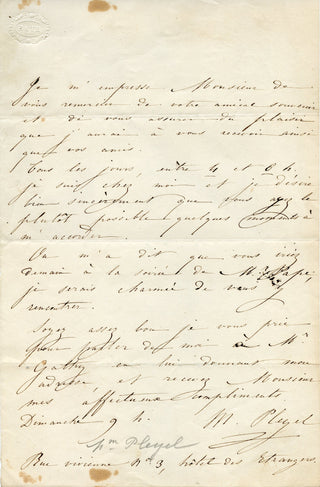 Je m'empresse Monsieur de
vous remercier de votre amical souvenir
et de vous assurer du plaisir
que j'aurai à vous revoir ainsi
que vos amis.
Tous les jours, entre 4 et 6 h.
je suis chez moi et je désire
bien sincèrement que vous ayez le
plutôt possible quelques moments à
m'accorder.
On m'a dit que vous iriez
demain à la soirée de Mr Pape,
je serais charmée de vous y
rencontrer.
Soyez assez bon je vous prie
pour parler de moi à Mr
Gathy en lui donnant mon
adresse, et recevez Monsieur
mes affectueux compliments
Dimanche 9 h. M. Pleyel
Pleyel
Rue vivienne No 3, hôtel des Etrangers.